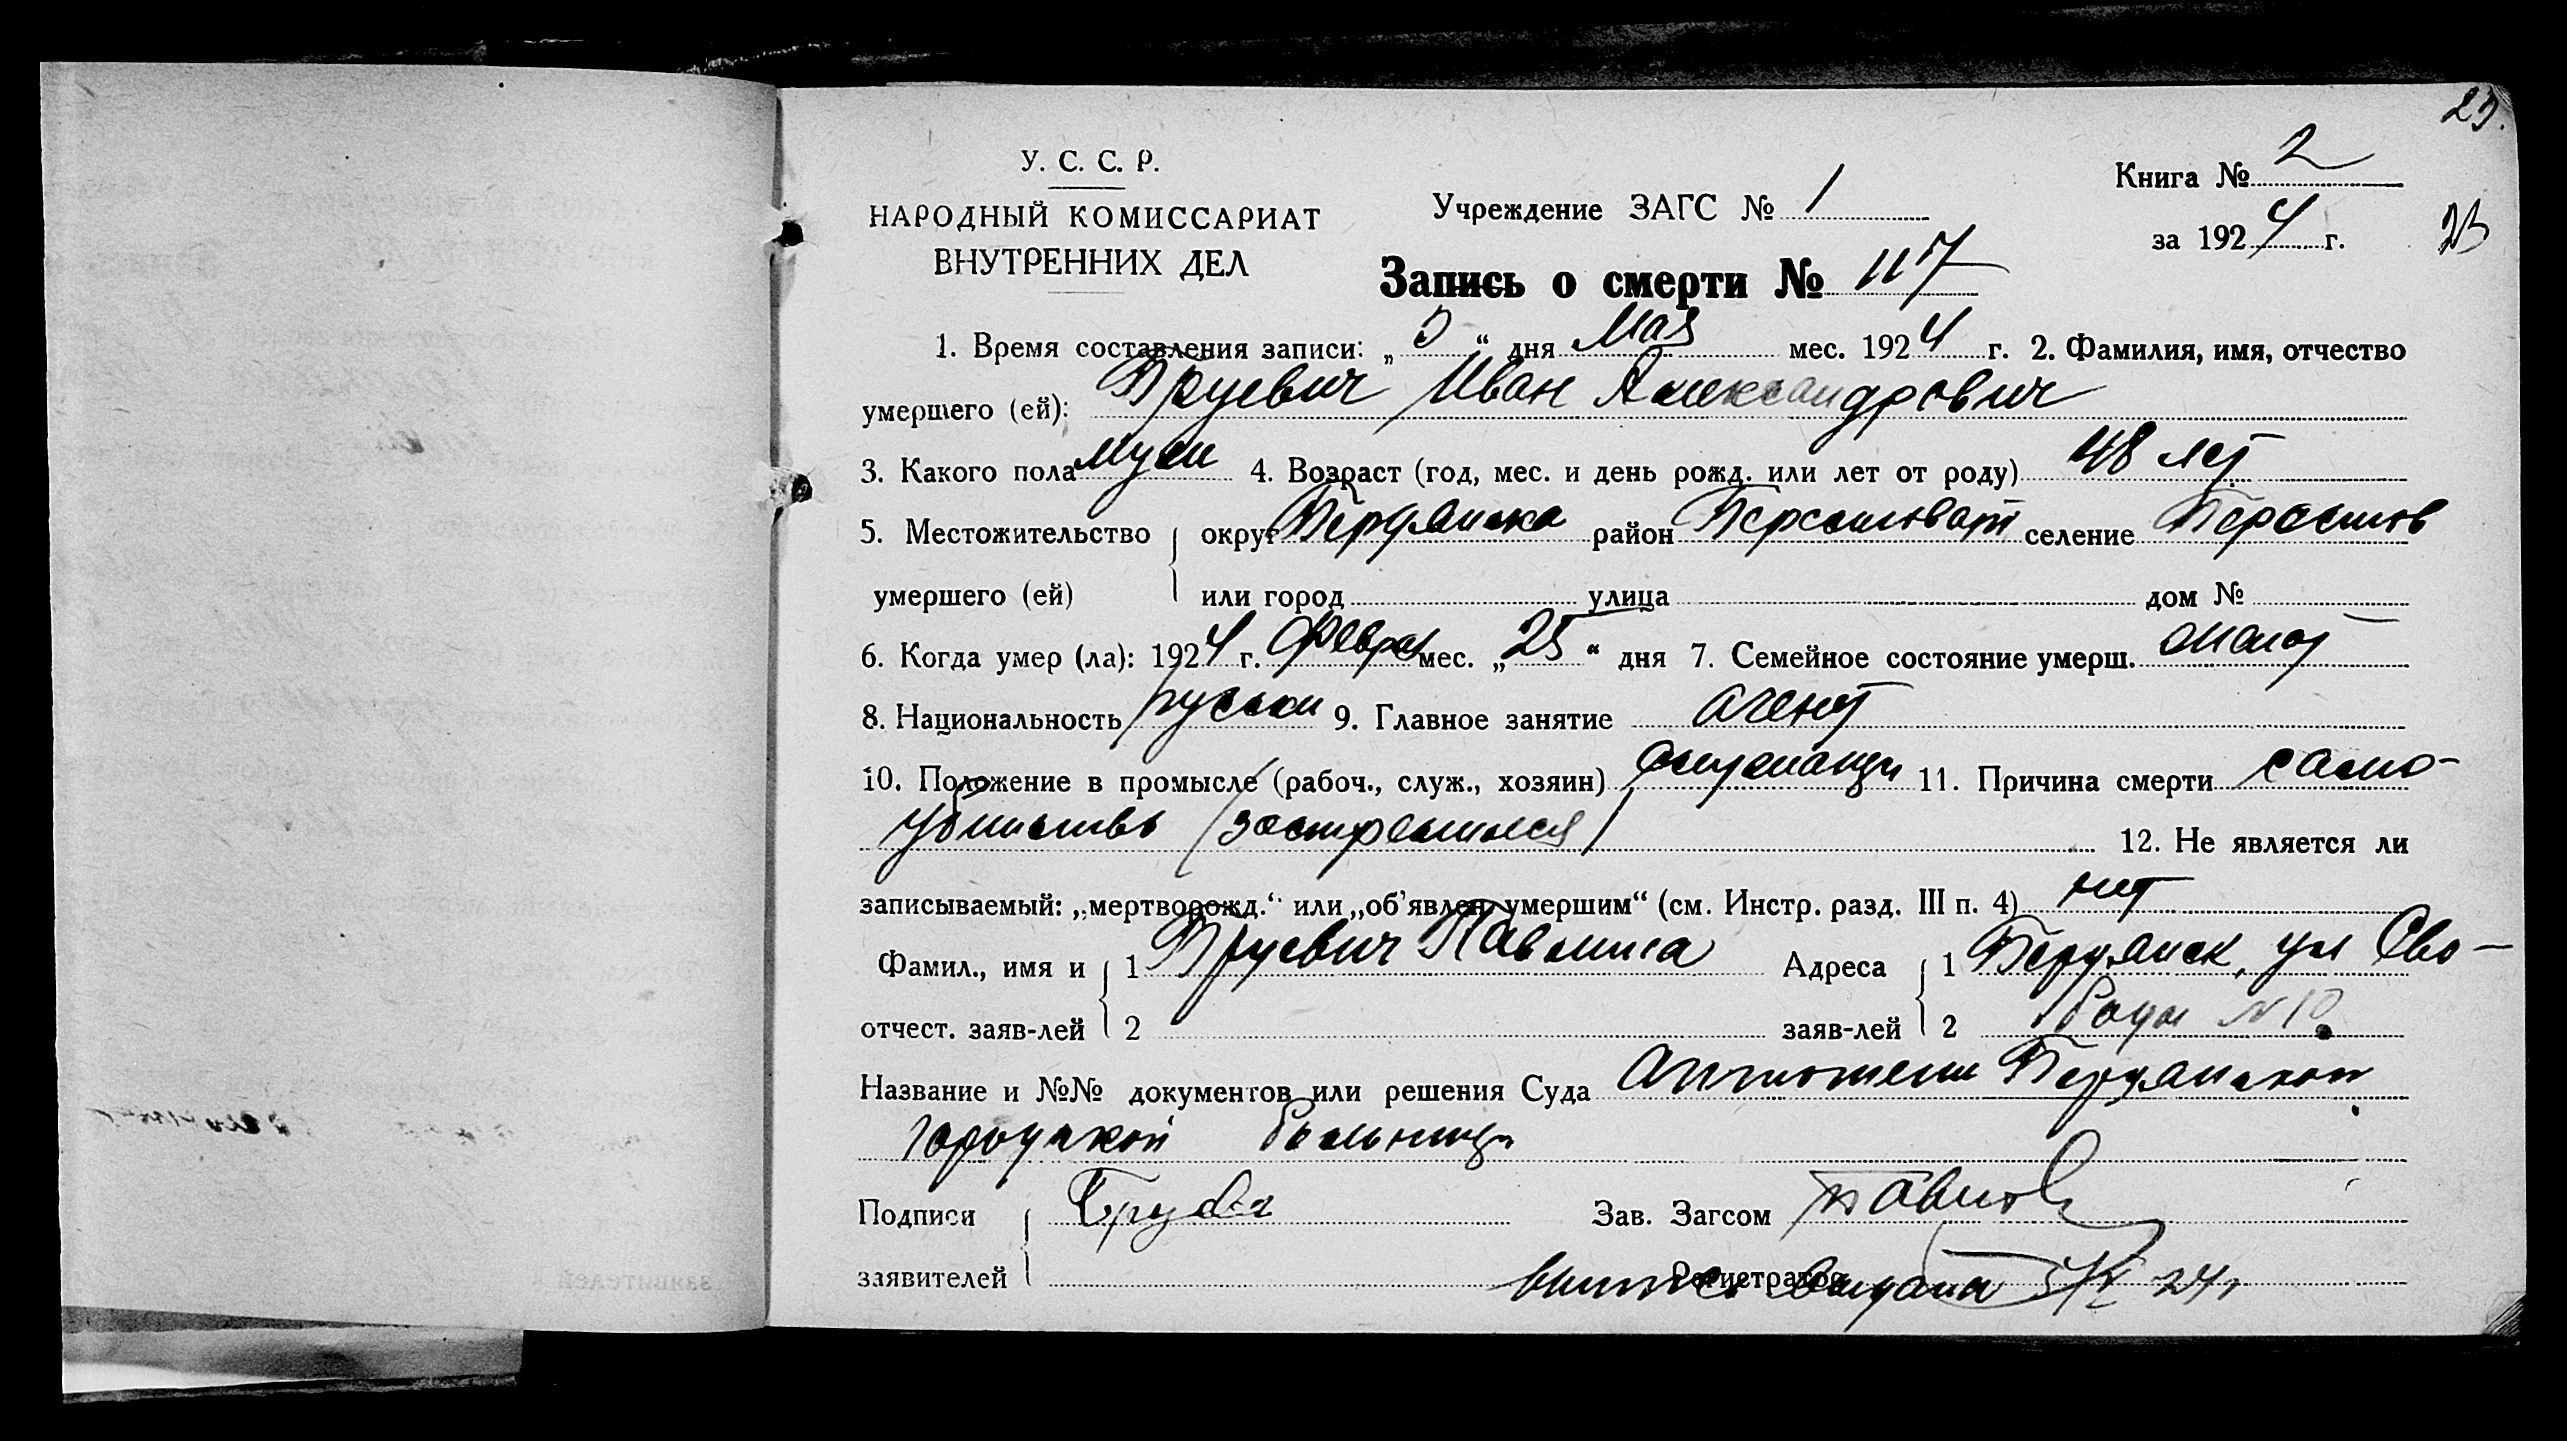 29.
У. С. С. Р.
НАРОДНЫЙ КОМИССАРИАТ
ВНУТРЕННИХ ДЕЛ
Учреждение ЗАГС № 1
Книга № 2
за 1924 г.
Запись о смерти № 117
1. Время составления записи: „5“ дня Мая мес. 1924 г. 2. Фамилия, имя, отчество
умершего (ей): Бруевич Иван Александрович
3. Какого пола муж 4. Возраст (год, мес. и день рожд. или лет от роду) 48 лет
5. Местожительство округ Бердянска район селение
умершего (ей) или город улица дом №
6. Когда умер (ла): 1924 г. Феврал мес. „25“ дня 7. Семейное состояние умерш. женат
8. Национальность русски 9. Главное занятие агент
10. Положение в промысле (рабоч., служ., хозяин) служащи 11. Причина смерти само-
убийство (застрелился) 12. Не является ли
записываемый: „мертворожд.“ или „об'явлен. умершим“ (см. Инстр. разд. III п. 4) нет
Фамил., имя и 1 Бруевич Павлина Адреса 1 Бердянск, ул Сво-
отчест. заяв-лей 2 заяв-лей 2 боды № 10
Название и №№ документов или решения Суда Бердянской
городской больницы
Подписи Зав. Загсом Павлов
заявителей Регистратор
выпись выдана 5/V 24 г